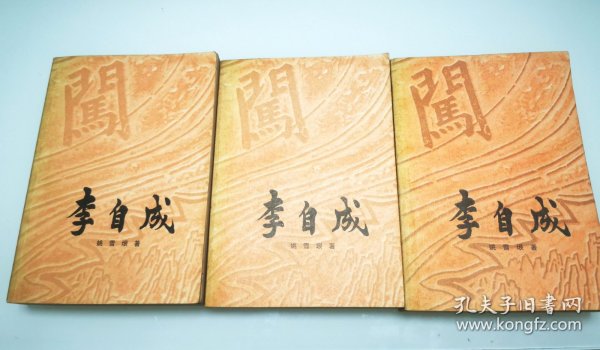 闖
李自成
姚雪垠著
闖
李自成
姚雪垠著
闖
李自成
姚雪垠著
孔夫子旧书网
www.kongfz.com